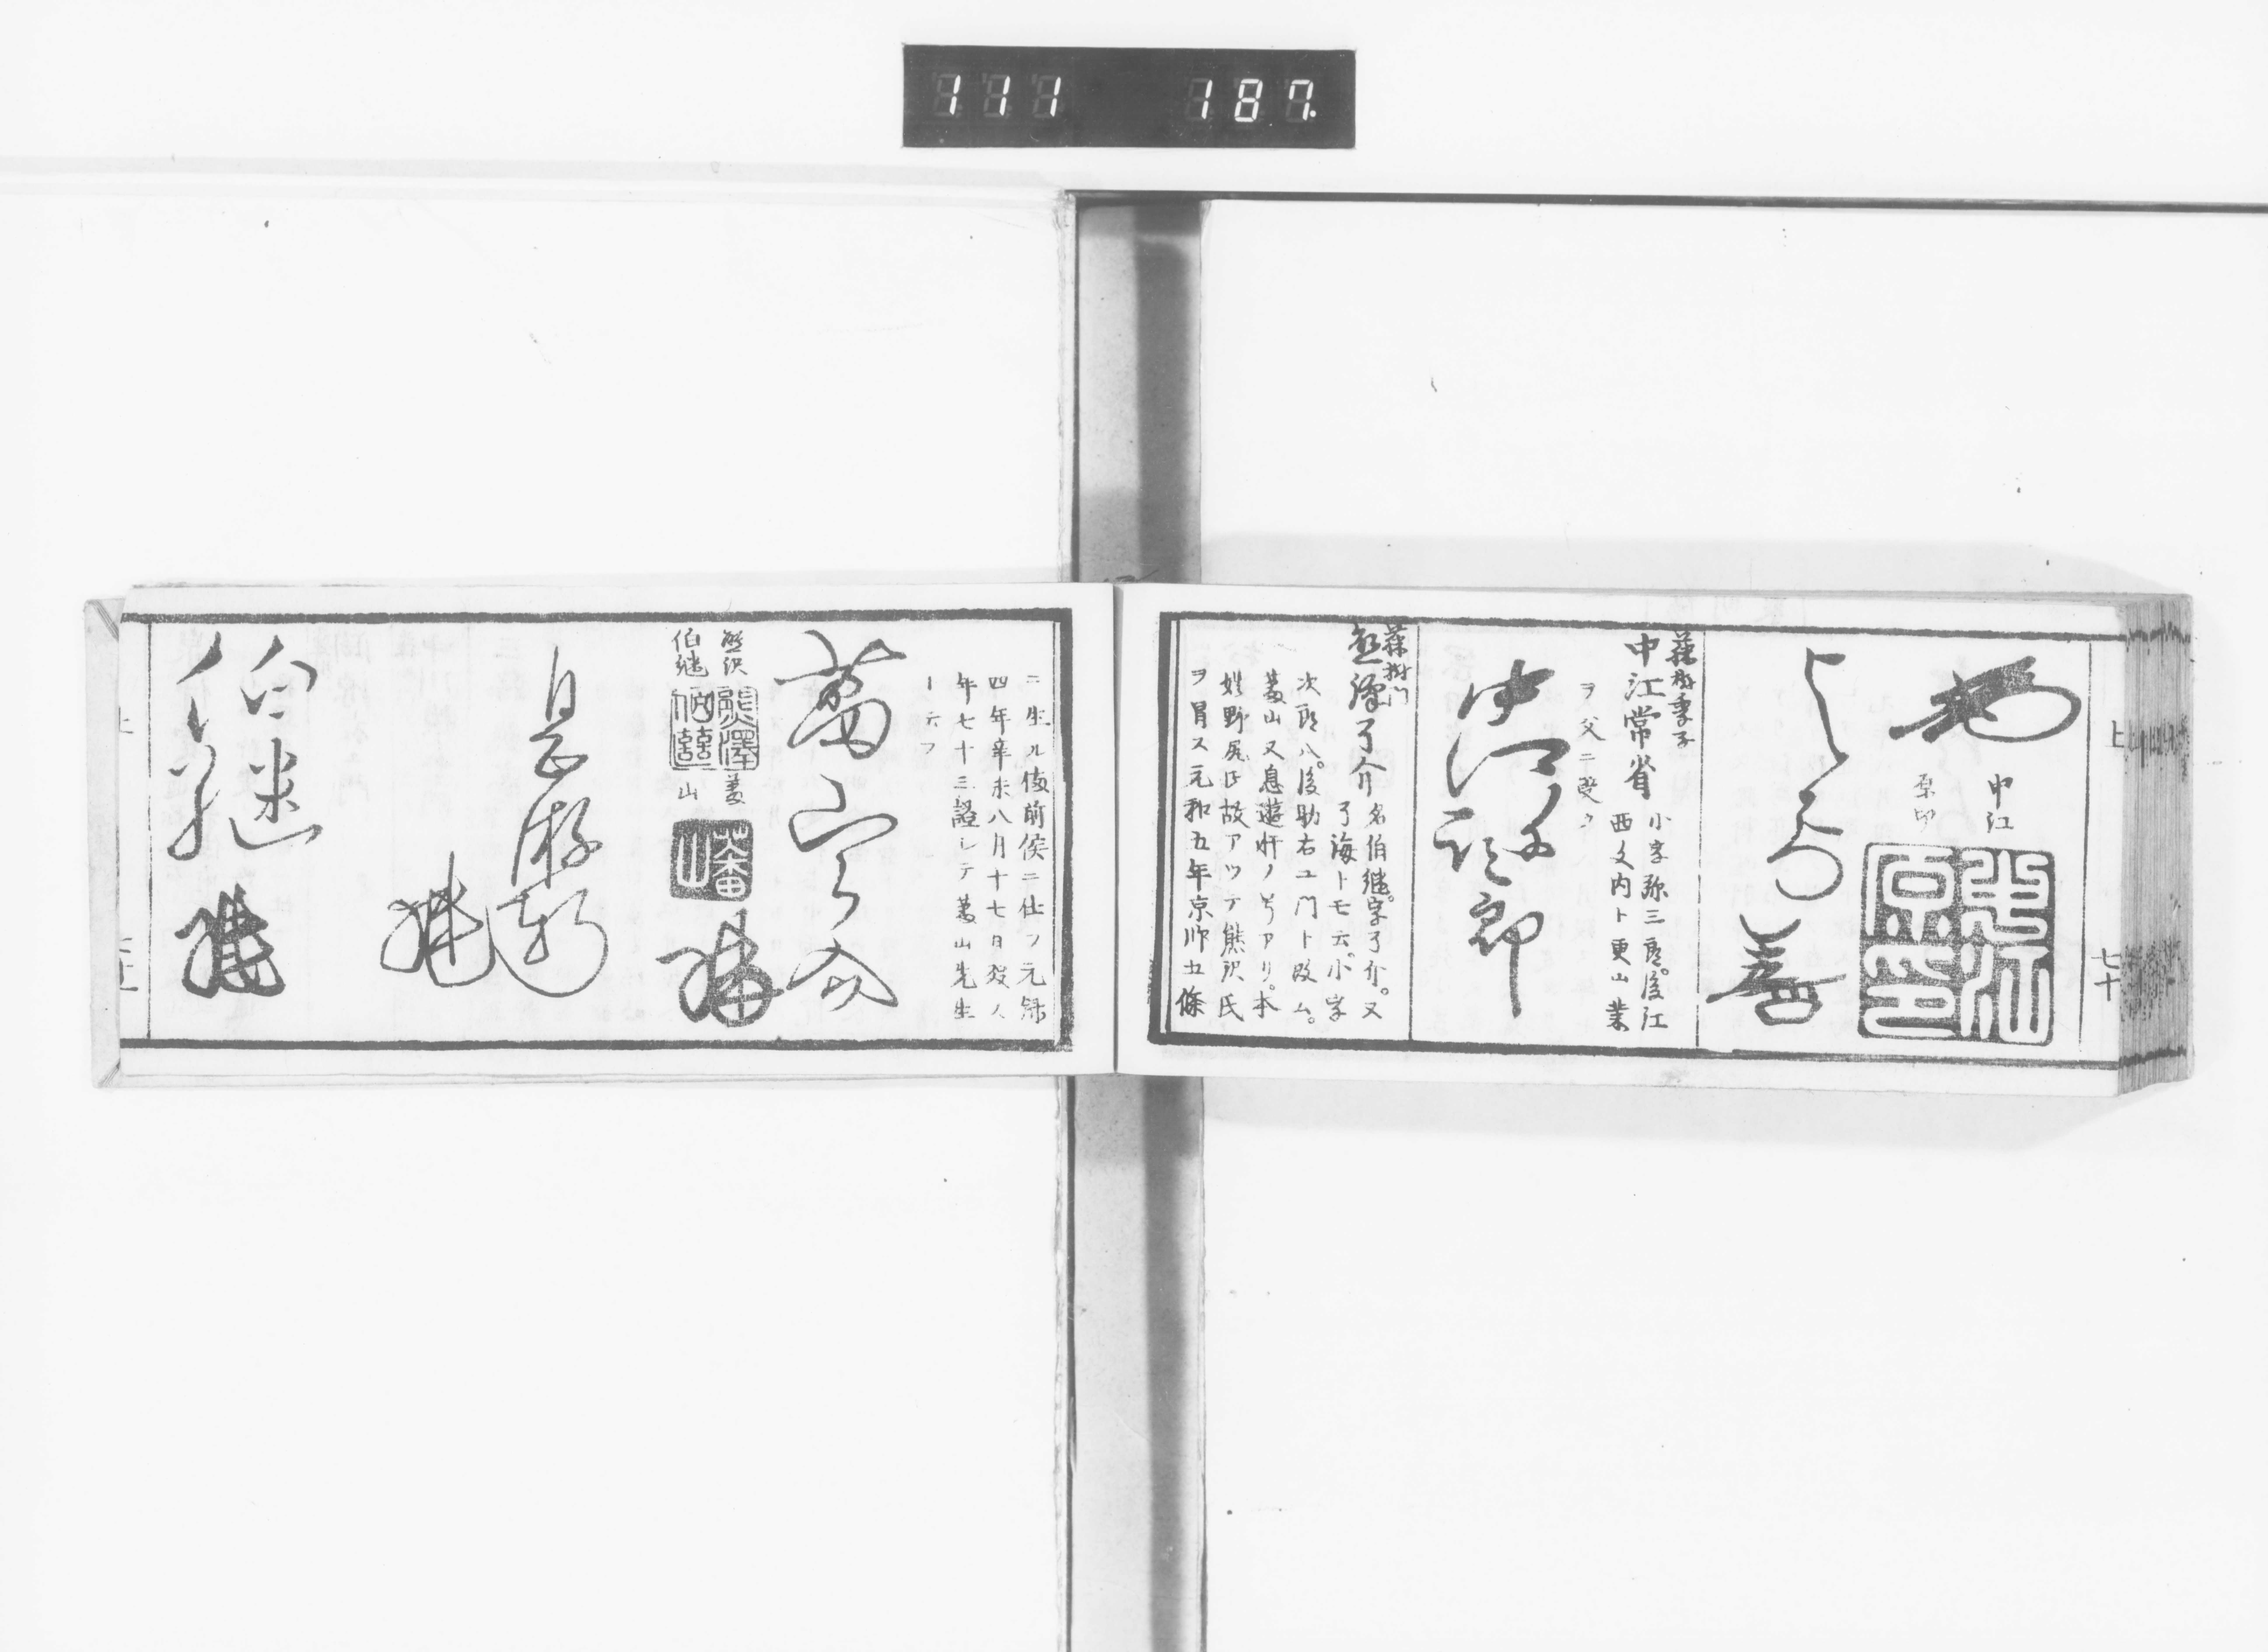 111 187.
上
七十
中江
原印
中江
原印
与右
藤樹季子
中江常省
小字弥三郎。後江
西文内ト更ム業
ヲ父ニ受ク
中江弥三郎
藤樹門
熊澤了介
名伯継。字了介。又
了海トモ云。小字
次郎八。後助右ヱ門ト改ム。
蕃山又息遊軒ノ号アリ。本
姓野尻氏故アツテ熊沢氏
ヲ冒ス元和五年京師五條
ニ生ル備前侯ニ仕フ元録
四年辛未八月十七日歿ス
年七十三諡シテ蕃山先生
ト云フ
蕃山
了介
熊沢
伯継
熊澤
伯継
蕃
山
蕃山
息游軒
伯継